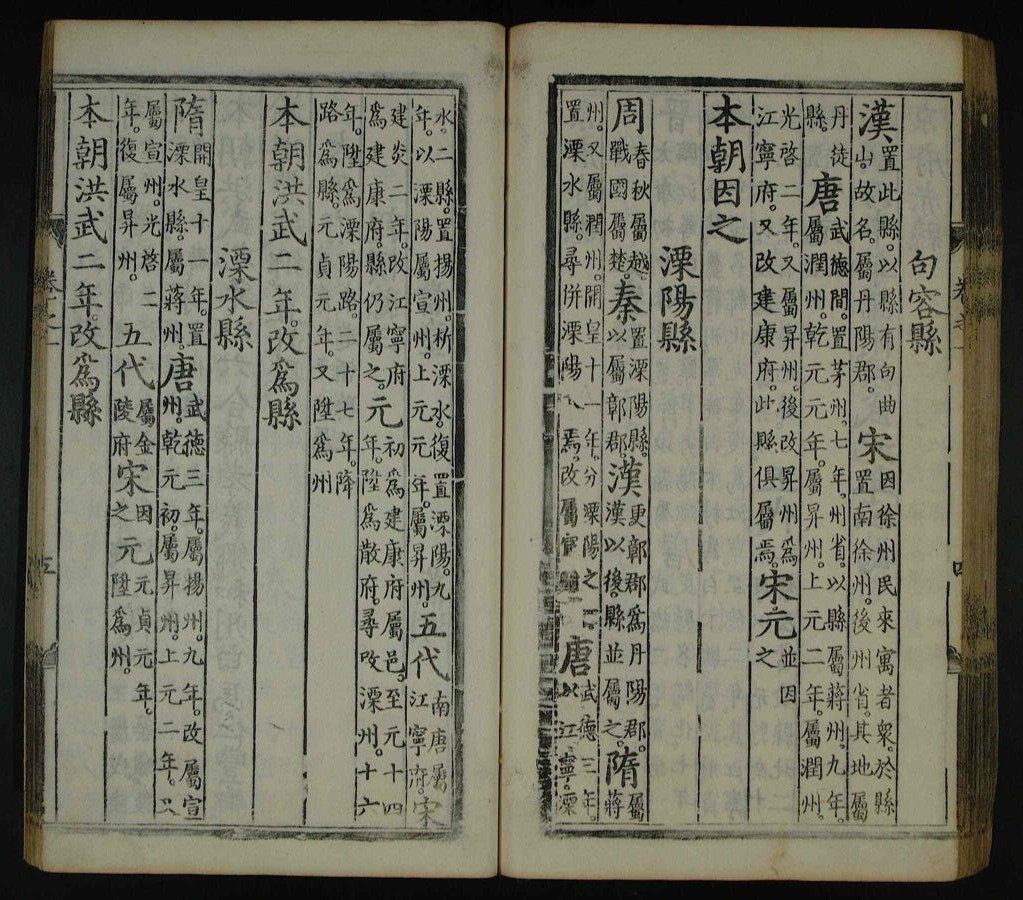 句容縣
漢置此縣。以縣有句曲山。故名。屬丹陽郡。宋因徐州民來寓者衆。於縣置南徐州。後州省。其地屬
丹徒縣。唐武德間。置茅州。七年。州省。以縣屬蔣州。九年。屬潤州。乾元元年。屬昇州。上元二年。屬潤州。
光啓二年。又屬昇州。後改昇州爲江寧府。又改建康府。此縣俱屬焉。宋元並因之
本朝因之
溧陽縣
周春秋屬越。戰國屬楚。秦置溧陽縣。以屬鄣郡。漢更鄣郡爲丹陽郡。漢以後。縣並屬之。隋屬蔣
州。又屬潤州。開皇十一年。分溧陽之置溧水縣。尋併溧陽入焉。改屬唐武德三年。以江寧溧
卷之一
四
水二縣。置揚州。析溧水。復置溧陽。九年。以溧陽屬宣州。上元元年。屬昇州。五代南唐屬江寧府。宋
建炎二年。改江寧府爲建康府。縣仍屬之。元初爲建康府屬邑。至元十四年。陞爲散府。尋改溧州。十六
年。陞爲溧陽路。二十七年。降路爲縣。元貞元年。又陞爲州
本朝洪武二年。改爲縣
溧水縣
隋開皇十一年。置溧水縣。屬蔣州。唐武德三年。屬揚州。九年。改屬宣州。乾元初。屬昇州。上元二年。又
屬宣州。光啓二年。復屬昇州。五代屬金陵府宋因之元元貞元年。陞爲州。
本朝洪武二年。改爲縣
卷之一
五